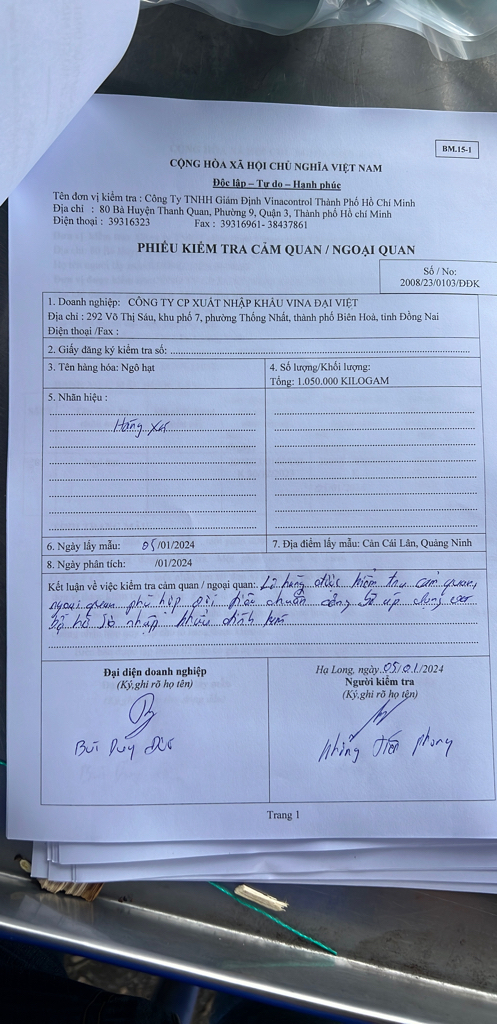 BM.15-1
CỘNG HÒA XÃ HỘI CHỦ NGHĨA VIỆT NAM
Độc lập – Tự do – Hạnh phúc
Tên đơn vị kiểm tra : Công Ty TNHH Giám Định Vinacontrol Thành Phố Hồ Chí Minh
Địa chỉ : 80 Bà Huyện Thanh Quan, Phường 9, Quận 3, Thành phố Hồ Chí Minh
Điện thoại : 39316323 Fax : 39316961- 38437861
PHIẾU KIỂM TRA CẢM QUAN / NGOẠI QUAN
Số / No:
2008/23/0103/ĐDK
1. Doanh nghiệp: CÔNG TY CP XUẤT NHẬP KHẨU VINA ĐẠI VIỆT
Địa chỉ : 292 Võ Thị Sáu, khu phố 7, phường Thống Nhất, thành phố Biên Hoà, tỉnh Đồng Nai
Điện thoại /Fax :
2. Giấy đăng ký kiểm tra số:
3. Tên hàng hóa: Ngô hạt
4. Số lượng/Khối lượng:
Tổng: 1.050.000 KILOGAM
5. Nhãn hiệu :
Hàng xá
6. Ngày lấy mẫu: 05/01/2024
7. Địa điểm lấy mẫu: Cản Cái Lân, Quảng Ninh
8. Ngày phân tích: /01/2024
Kết luận về việc kiểm tra cảm quan / ngoại quan: Lô hàng được kiểm tra cảm quan,
ngoại quan phù hợp với tiêu chuẩn công bố áp dụng
hồ sơ nhập khẩu đính kèm
Đại diện doanh nghiệp
(Ký,ghi rõ họ tên)
Bùi Duy Đức
Hạ Long, ngày 05/01/2024
Người kiểm tra
(Ký,ghi rõ họ tên)
Phùng Tiến Phong
Trang 1